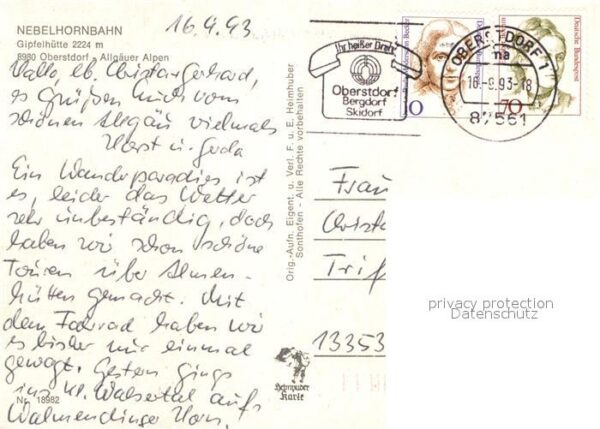 NEBELHORNBAHN
Gipfelhütte 2224 m
8980 Oberstdorf · Allgäuer Alpen
16.9.93
Hallo, lb. Christa + Gerhard,
es grüßen Euch vom
schönen Allgäu vielmals
Horst u. Gerda
Ein Wanderparadies ist
es, leider das Wetter
sehr unbeständig, doch
haben wir schon schöne
Touren über Almen-
hütten gemacht. Mit
dem Fahrrad haben wir
es bisher nur einmal
gewagt. Gestern gings
ins kl. Walsertal aufs
Walmendinger Horn.
Nr. 18982
Orig.-Aufn. Eigent. u. Verl. F. u. E. Heimhuber
Sonthofen - Alle Rechte vorbehalten
Heimhuber
Karte
Ihr heißer Draht
Oberstdorf
Bergdorf
Skidorf
10
Deutsche Bundespost
70
OBERSTDORF 1
na
16.-9.93-18
87561
Frau
Christa
Trif
13353
privacy protection
Datenschutz